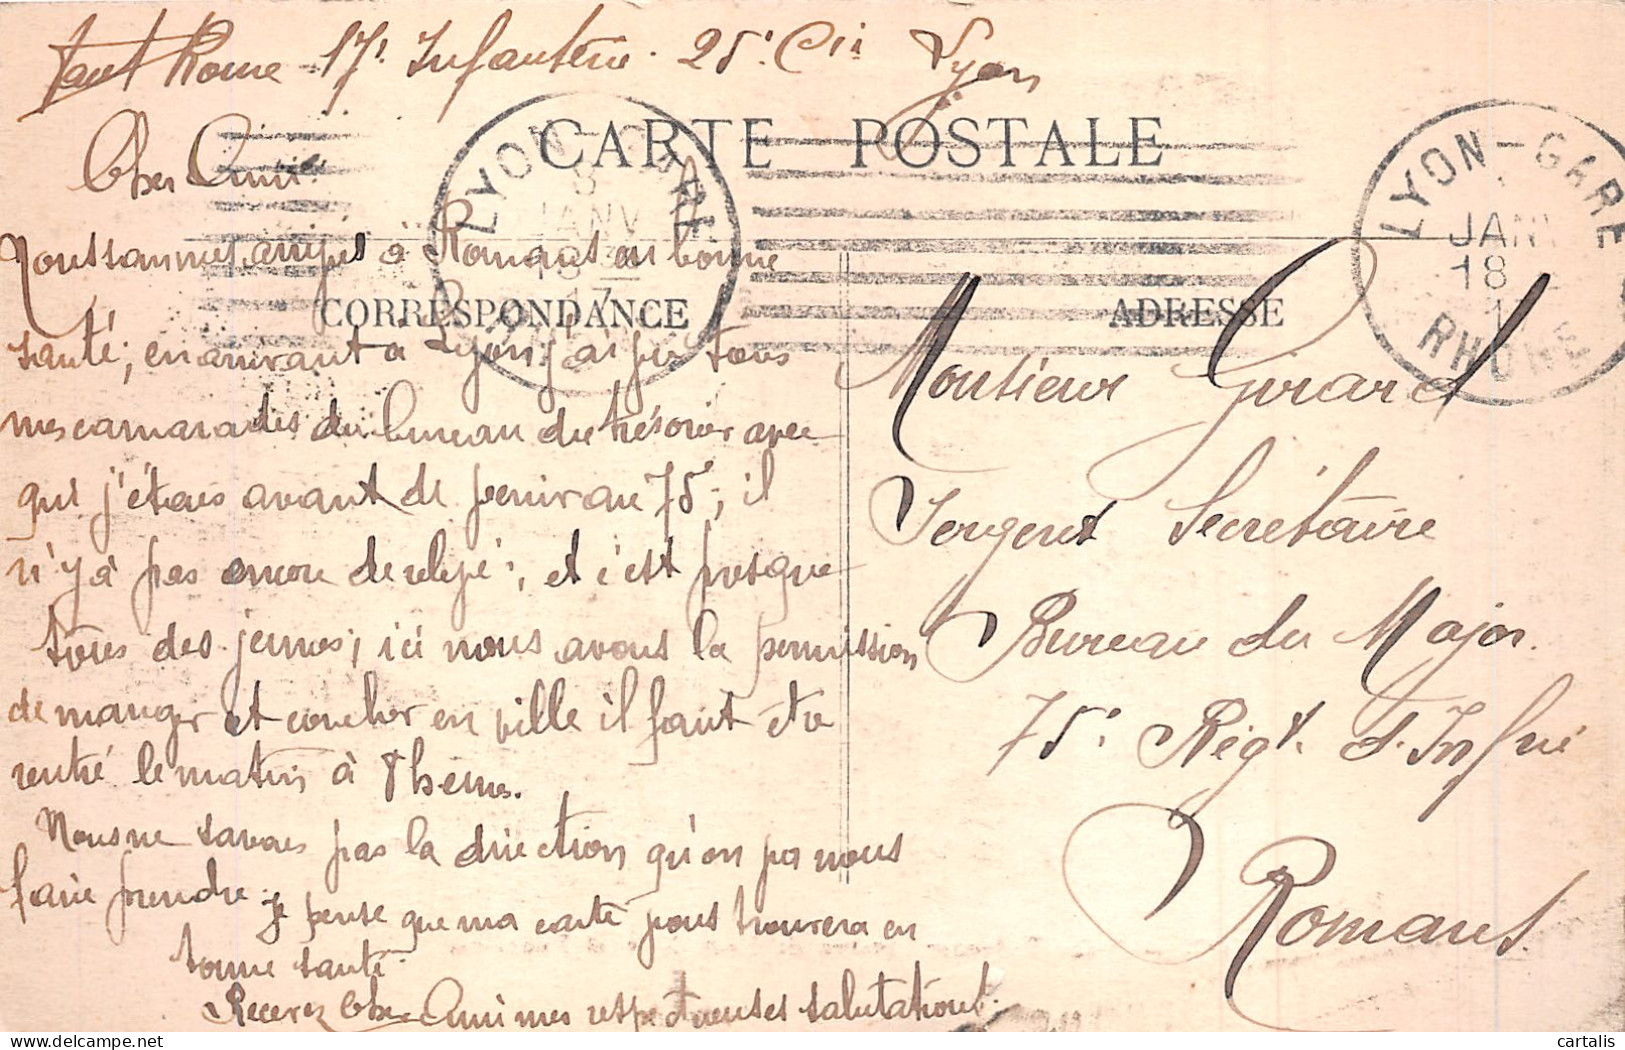 17e Infanterie. 25e Cie Lyon
CARTE POSTALE
Cher Ami
LYON-GARE
JANV
LYON-GARE
JANV
18
RHONE
Nous sommes arrivés à Romans en bonne
CORRESPONDANCE
ADRESSE
santé; en arrivant à Lyon j'ai vu tous
mes camarades du bureau du trésorier avec
qui j'étais avant de venir au 75; il
n'y à pas encore de relevé; et c'est presque
tous des jeunes; ici nous avons la permission
de manger et coucher en ville il faut être
rentré le matin à 8 heures.
Nous ne savons pas la direction qu'on va nous
faire prendre. je pense que ma carte vous trouvera en
bonne santé.
Recevez Cher Ami mes respectueuses salutations.
Monsieur Girard
Sergent Secrétaire
Bureau du Major
75e Régt. d'Infrie
Romans
cartalis